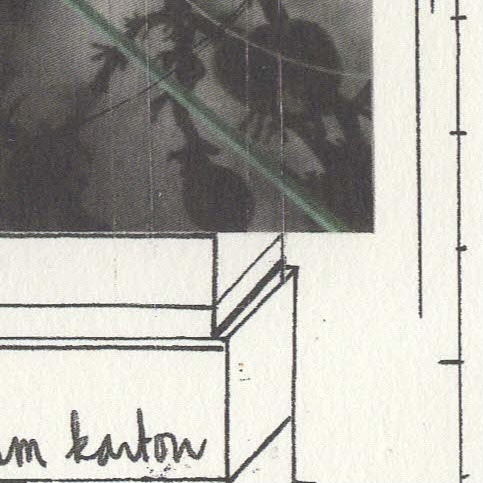 mm karton